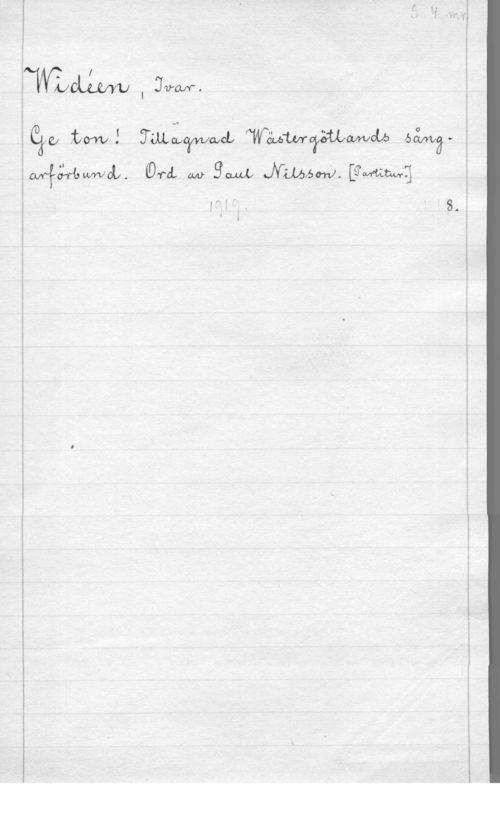 S 4 mn
Widéen, Ivar.
Ge ton! Tillägnad Wästergötlands sång-
arförbund. Ord av Paul Nilsson. [Partitur.]
1919. 8.